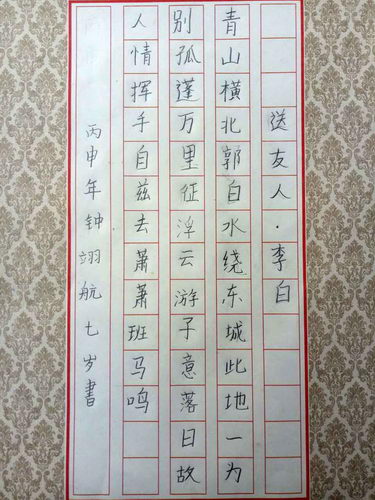 送友人·李白
青山横北郭白水绕东城此地一为
别孤蓬万里征浮云游子意落日故
人情挥手自兹去萧萧班马鸣
丙申年钟翊航七岁书